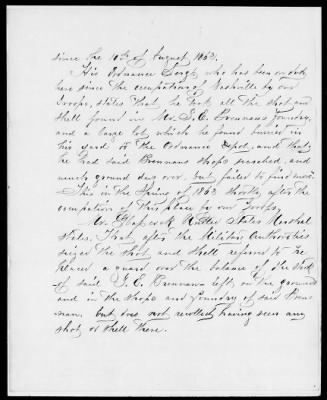 since the 10th of August 1863.
His Ordnance Sergt, who has been on duty
here since the occupation of Nashville by our
troops, states that he took all the shot and
shell found in Mr. T. C. Brennans foundry,
and a large lot, which he found buried in
his yard to the Ordnance Depot, and that
he had said Brennans shops searched, and
ground dug over, but failed to find more.
This in the Spring of 1862 shortly after the
occupation of this place by our troops.
Mr. Glascock United States Marshal
states, that after the Military Authorities
seized the shot and shell referred to he
placed a guard over the balance of the stock
of said T. C. Brennan left, on the grounds
and in the shops and foundry of said Bren-
nan, but does not recollect having seen any
shot or shell there.